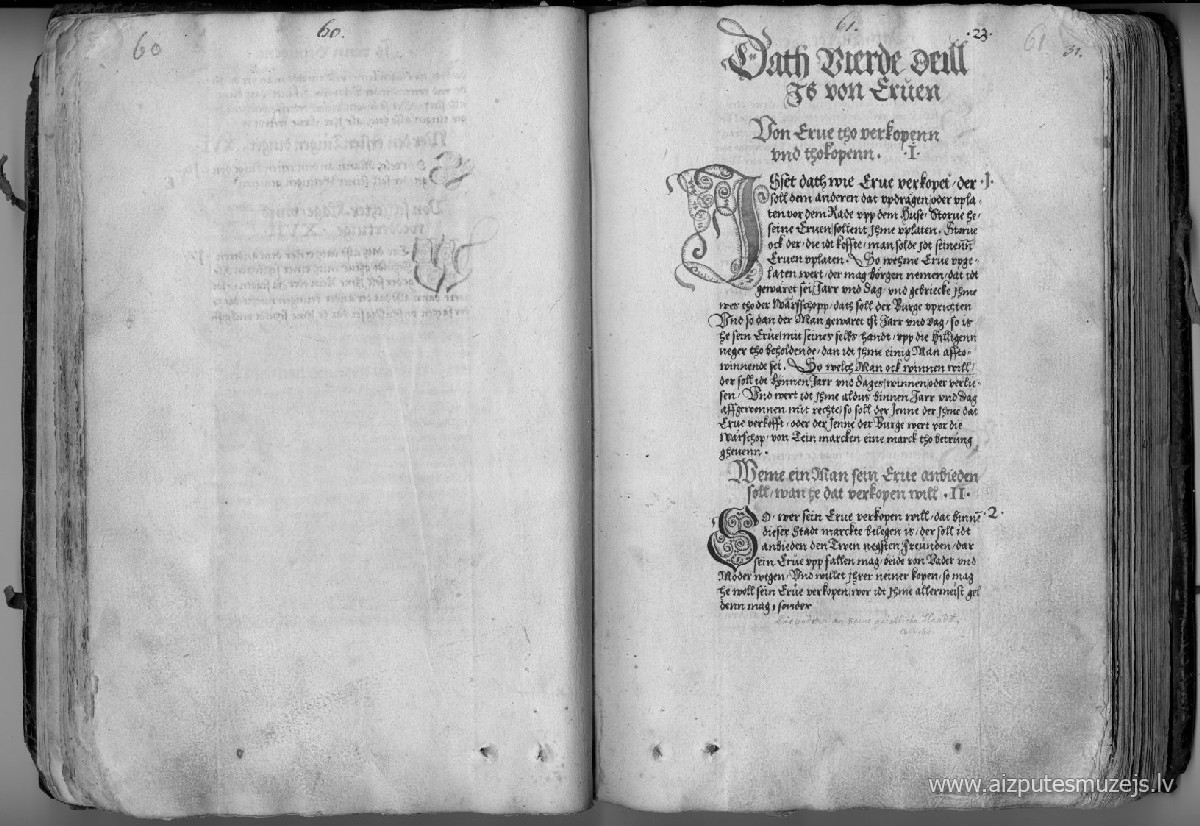 60
60.
61.
·23·
61
31.
Dath Vierde Deill
Is von Eruen
Von Erue tho verkopenn
vnd thokopenn. ·I·
ISset dath wie Erue verkopet, der ·1·
soll dem anderen dat vpdragen, oder vpla-
ten vor dem Rade vpp dem Huse, Storue he,
seine Eruen sollent Ihme vplaten. Storue
ock der, die idt koffte, man solde idt seinenn
Eruen vplaten. So wehme Erue vpge-
laten wert, der mag börgen nemen, dat idt
gewaret sei, Jarr vnd dag, vnd gebriecke Ihme
wes tho der Warsschopp, dath soll der Burge vprichten
Vnd so dan der Man gewaret ist Jarr vnd dag, so is
he sein Erue mit seines selbs handt, vpp die Hilligenn
neger tho beholdende, dan idt Ihme einig Man affto-
winnende sei. So welch Man ock winnen will,
der soll idt bynnen Jarr vnd dages winnen, oder verlie-
sen, Vnd wert idt Ihme aldus binnen Jarr vnd Dag
affgewonnen mit rechte, so soll der Jenne der Ihme dat
Erue verkofft, oder der Jenne der Burge wert vor die
Warschop, von Tein marcken eine marck tho betrung
gheuenn.
Weme ein Man sein Erue anbieden
soll, wan he dat verkopen will ·II·
So, wer sein Erue verkopen will, dat binnē ·2·
dieser Stadt marckte belegen is, der soll idt
anbieden den Twen negsten Freunden, dar
sein Erue vpp fallen mag, beide von Vader vnd
Moder wegen, Vnd willet Ihrer neiner kopen, so mag
he woll sein Erue verkopen, wor idt Ihme allermeist gel
denn mag, sonder
www.aizputesmuzejs.lv